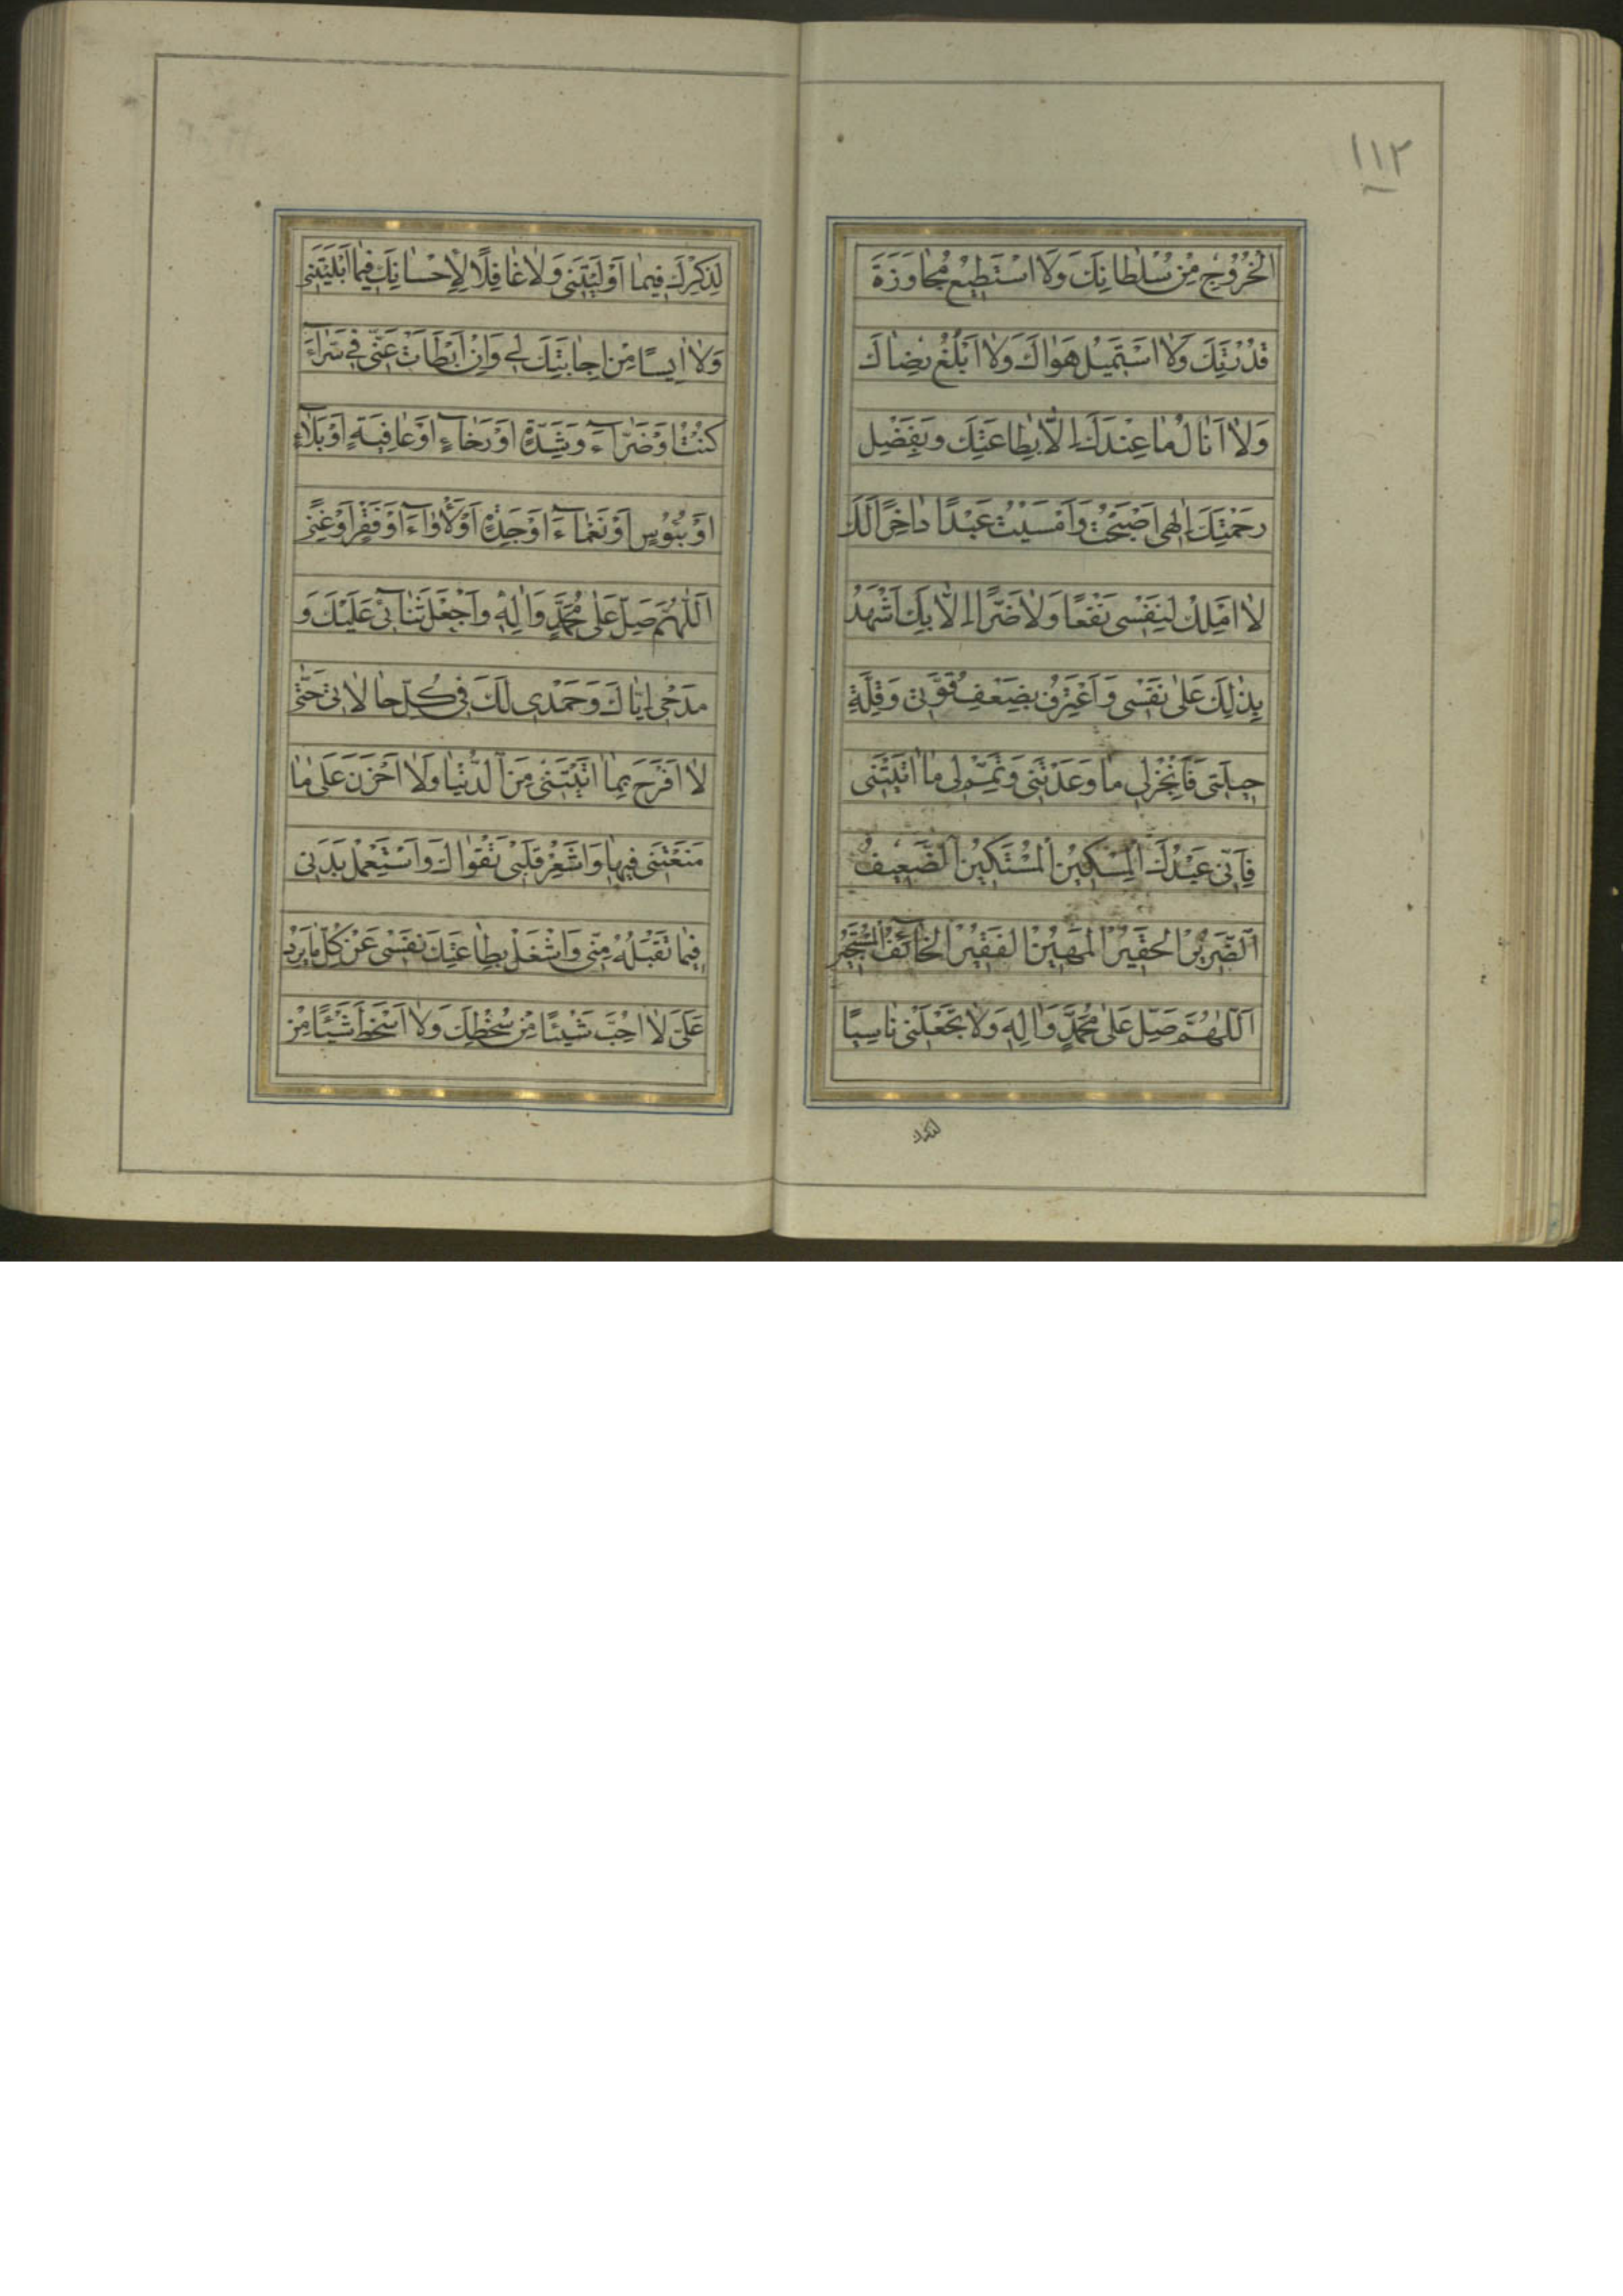 ١١٢
الْخُرُوجَ مِنْ سُلْطانِكَ وَلا اَسْتَطيعُ مُجاوَزَةَ
قُدْرَتِكَ وَلا اَسْتَميلُ هَواكَ وَلا اَبْلُغُ رِضاكَ
وَلا اَنالُ ما عِنْدَكَ اِلّا بِطاعَتِكَ وَبِفَضْلِ
رَحْمَتِكَ اِلهى اَصْبَحْتُ وَاَمْسَيْتُ عَبْدًا داخِرًا لَكَ
لا اَمْلِكُ لِنَفْسى نَفْعًا وَلا ضَرًّا اِلّا بِكَ اَشْهَدُ
بِذلِكَ عَلى نَفْسى وَاَعْتَرِفُ بِضَعْفِ قُوَّتى وَقِلَّةِ
حيلَتى فَاَنْجِزْ لى ما وَعَدْتَنى وَتَمِّمْ لى ما اتَيْتَنى
فَاِنّى عَبْدُكَ الْمِسْكينُ الْمُسْتَكينُ الضَّعيفُ
اَلضَّريرُ الْحَقيرُ الْمَهينُ الْفَقيرُ الْخآئِفُ الْمُسْتَجيرُ
اَللّهُمَّ صَلِّ عَلى مُحَمَّدٍ وَالِهِ وَلا تَجْعَلْنى ناسِيًا
لذكرك
لِذِكْرِكَ فيما اَوْلَيْتَنى وَلا غافِلًا لِاِحْسانِكَ فيما اَبْلَيْتَنى
وَلا ايِسًا مِنْ اِجابَتِكَ لى وَاِنْ اَبْطَاَتْ عَنّى فى سَرّآءَ
كُنْتُ اَوْ ضَرّآءَ وَشِدَّةٍ اَوْ رَخآءٍ اَوْ عافِيَةٍ اَوْ بَلآءٍ
اَوْ بُؤْسٍ اَوْ نَعْمآءَ اَوْ جِدَةٍ اَوْ لَأْوآءَ اَوْ فَقْرٍ اَوْ غِنًى
اَللّهُمَّ صَلِّ عَلى مُحَمَّدٍ وَالِهِ وَاجْعَلْ ثَنآئى عَلَيْكَ وَ
مَدْحى اِيّاكَ وَحَمْدى لَكَ فى كُلِّ حالاتى حَتّى
لا اَفْرَحَ بِما اتَيْتَنى مِنَ الدُّنْيا وَلا اَحْزَنَ عَلى ما
مَنَعْتَنى فيها وَاَشْعِرْ قَلْبى تَقْواكَ وَاسْتَعْمِلْ بَدَنى
فيما تَقْبَلُهُ مِنّى وَاشْغَلْ بِطاعَتِكَ نَفْسى عَنْ كُلِّ ما يَرِدُ
عَلَىَّ لا اُحِبَّ شَيْئًا مِنْ سُخْطِكَ وَلا اَسْخَطَ شَيْئًا مِنْ